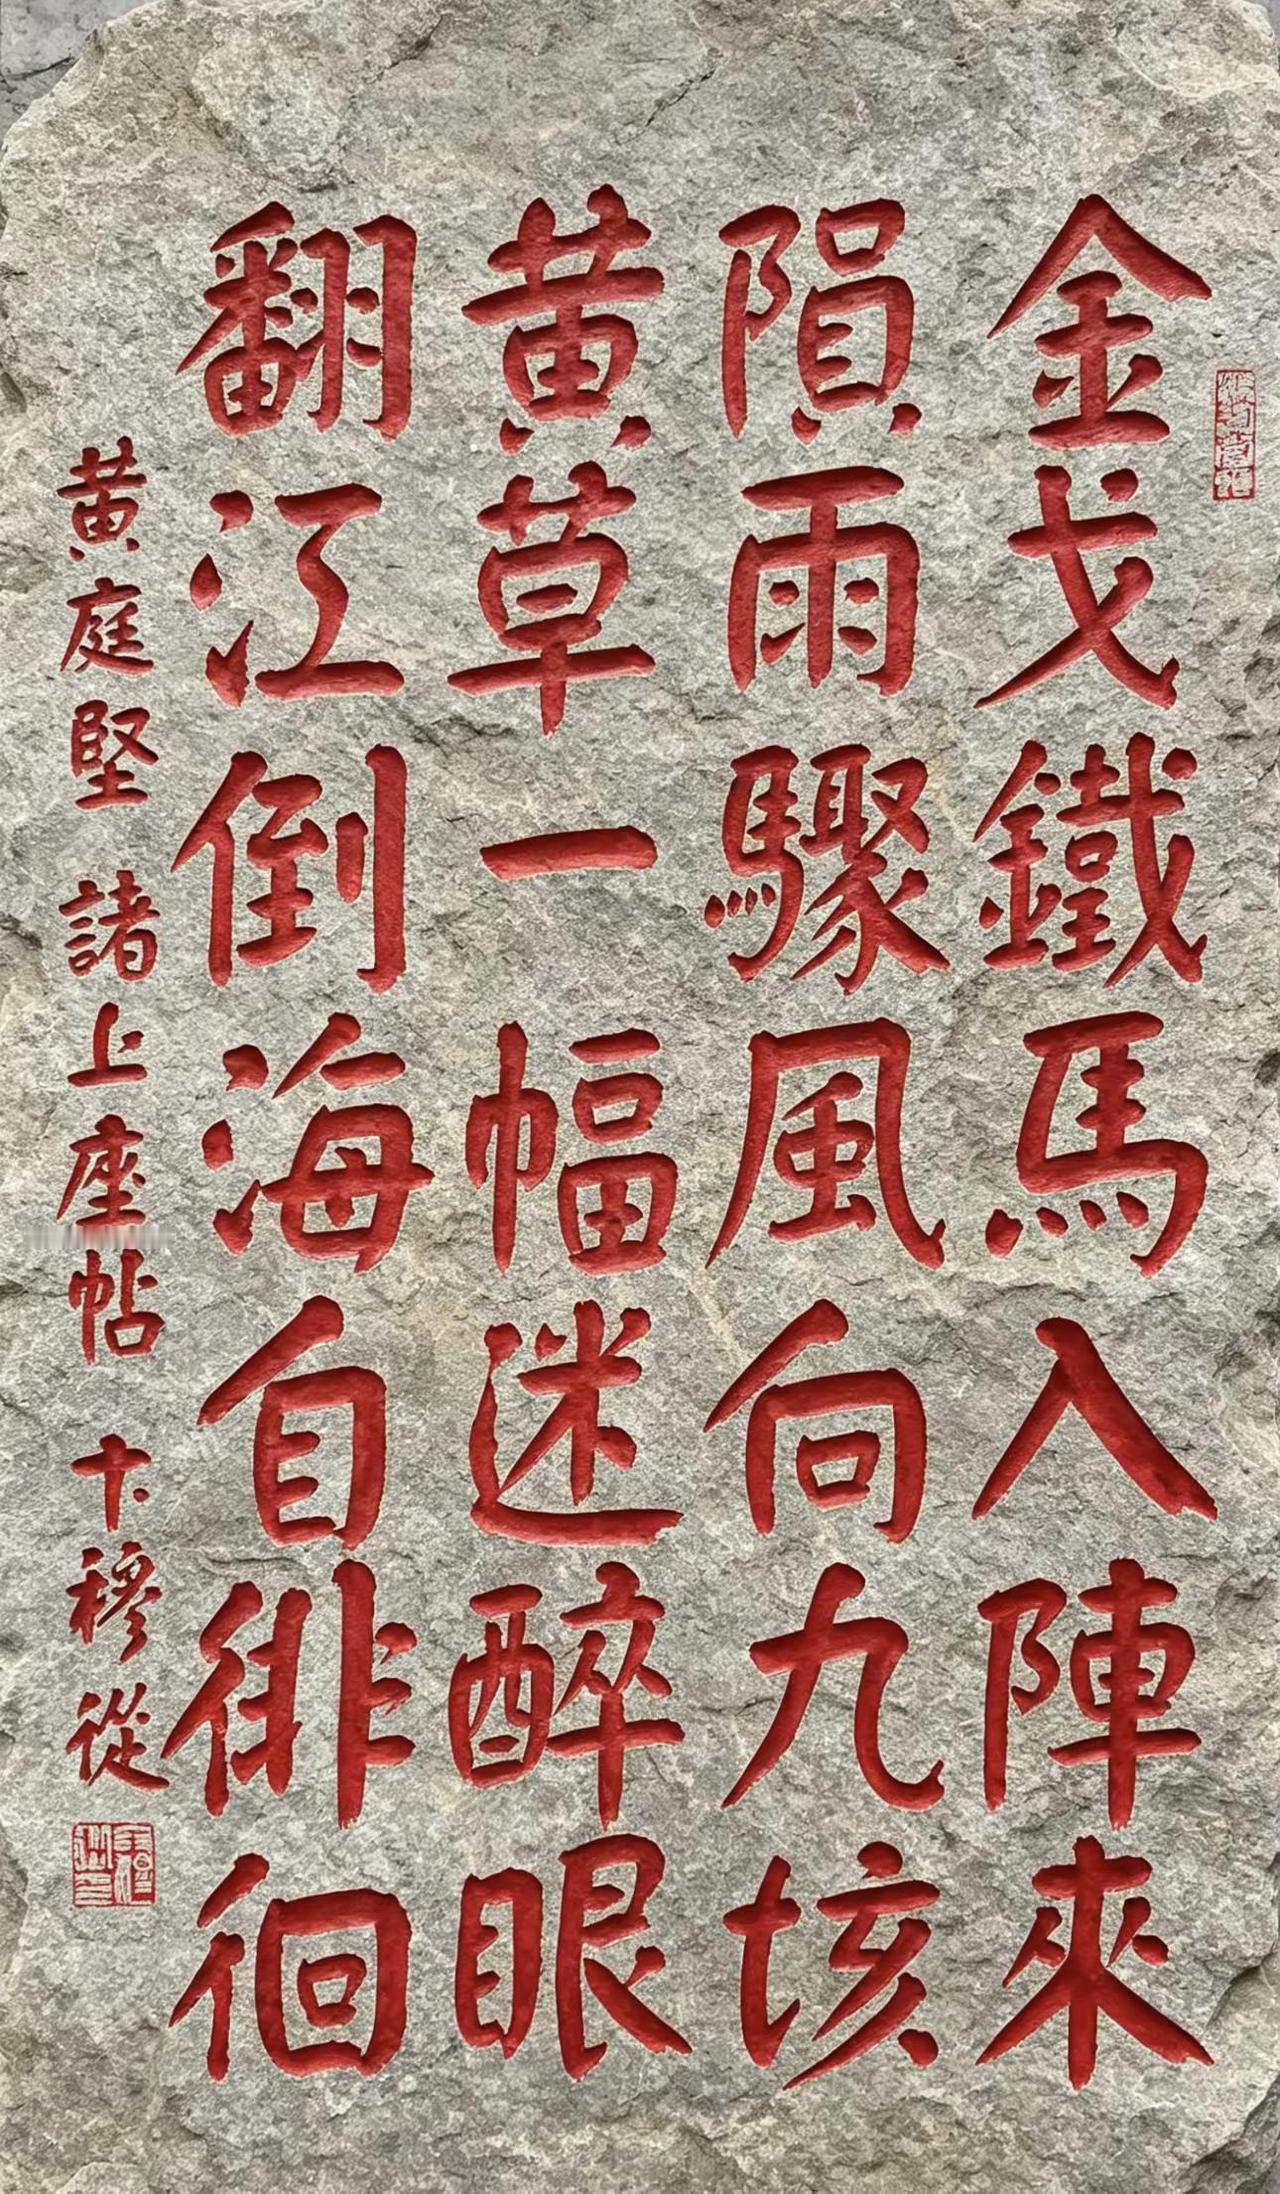 金戈鐵馬入陣來
隕雨驟風向九垓
黄草一幅迷醉眼
翻江倒海自徘徊
黄庭堅 諸上座帖 卞穆從